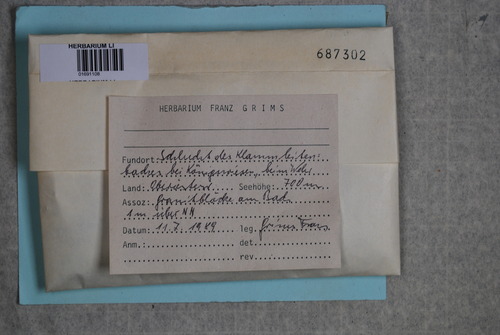 HERBARIUM LI
01691108
687302
HERBARIUM FRANZ GRIMS
Fundort: Schlucht des Klammleiten-
baches bei Königswiesen,
Land: Oberösterr. Seehöhe: 700 m
Assoz: Granitblöcke am Bach
1 m über NW
Datum: 11.7.1989 leg. Grims Franz
Anm.: det.
rev.